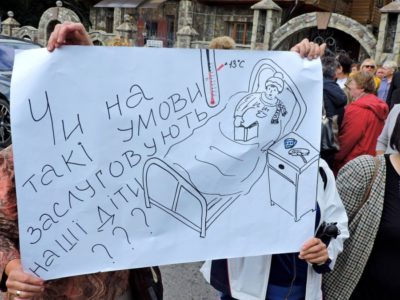 +13°C
Чи на
такі умови
заслуговують
наші діти
???